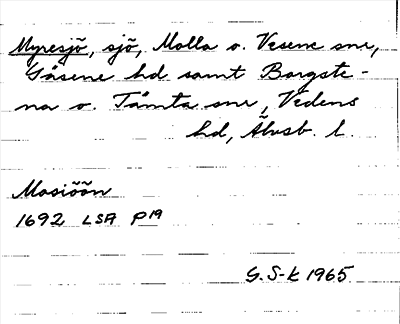 Myresjö, sjö, Molla o. Vesene snr,
Gäsene hd samt Borgste-
na o. Tämta snr, Vedens
hd, Älvsb. l.
Mosiöön
1692 LSA P19
G.S-K 1965